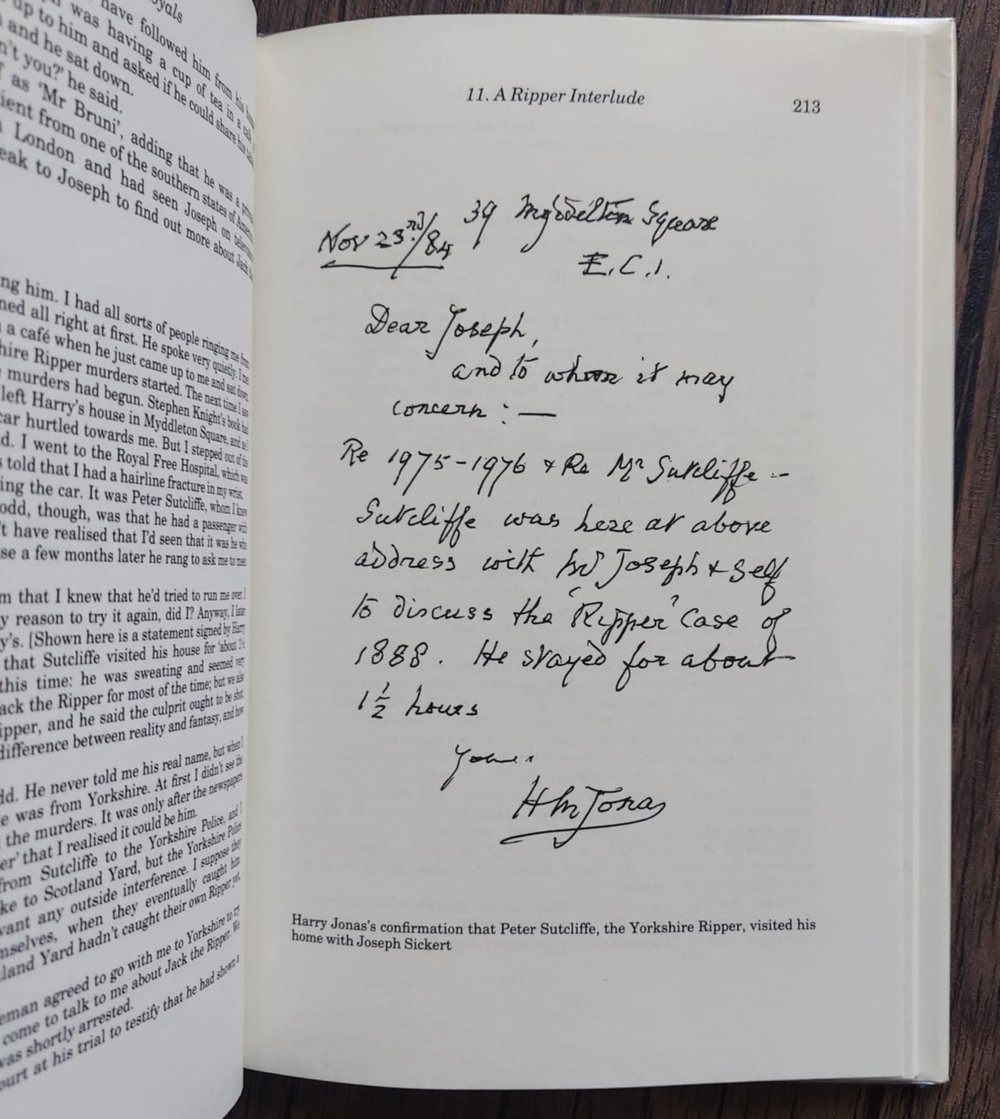 oyals
have followed him from his
was having a cup of tea in a
up to him and asked if he could share his
and he sat down.
n't you?' he said.
as 'Mr Bruni', adding that he was a
ient from one of the southern states of America
London and had seen Joseph on
eak to Joseph to find out more about Jack
ng him. I had all sorts of people ringing me from
ned all right at first. He spoke very quietly. I
a café when he just came up to me and sat down
hire Ripper murders started. The next time I saw
murders had begun. Stephen Knight's book had
left Harry's house in Myddleton Square, and as I
car hurtled towards me. But I stepped out of the
d. I went to the Royal Free Hospital, which was
told that I had a hairline fracture in my wrist.
ing the car. It was Peter Sutcliffe, whom I knew
odd, though, was that he had a passenger with
't have realised that I'd seen that it was he who
se a few months later he rang to ask me to meet
m that I knew that he'd tried to run me over. I
y reason to try it again, did I? Anyway, I later
y's. [Shown here is a statement signed by Harry
that Sutcliffe visited his house for 'about
this time: he was sweating and seemed very
ack the Ripper for most of the time; but we also
ipper, and he said the culprit ought to be shot.
difference between reality and fantasy, and how
ld. He never told me his real name, but when I
e was from Yorkshire. At first I didn't see the
the murders. It was only after the newspapers
er' that I realised it could be him.
from Sutcliffe to the Yorkshire Police, and I
ke to Scotland Yard, but the Yorkshire Police
vant any outside interference. I suppose they
mselves, when they eventually caught him.
land Yard hadn't caught their own Ripper yet.
eman agreed to go with me to Yorkshire to try
come to talk to me about Jack the Ripper. We
was shortly arrested.
ourt at his trial to testify that he had shown a
11. A Ripper Interlude
213
Nov 23rd/84
39 Myddelton Square
E.C.1.
Dear Joseph,
and to whom it may
concern : —
Re 1975-1976 & Re Mr Sutcliffe --
Sutcliffe was here at above
address with Joseph & self
to discuss the "Ripper" Case of
1888. He stayed for about
1 1/2 hours
Yours
HM Jonas
Harry Jonas's confirmation that Peter Sutcliffe, the Yorkshire Ripper, visited his
home with Joseph Sickert